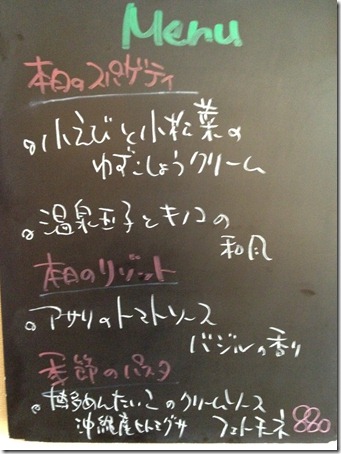 Menu
本日のスパゲティ
小えびと小松菜の
ゆずこしょうクリーム
温泉玉子とキノコの
和風
本日のリゾット
アサリのトマトソース
バジルの香り
季節のパスタ
博多めんたいこのクリームソース
沖縄産ヒトエグサ フェトチーネ 880